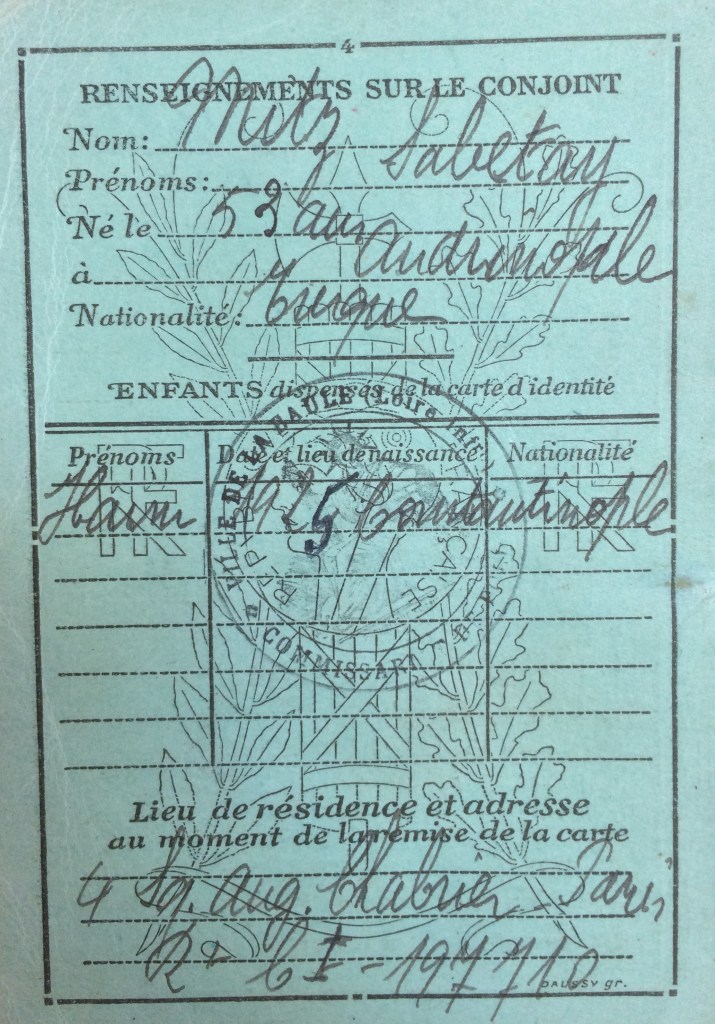 4
RENSEIGNEMENTS SUR LE CONJOINT
Nom: Mitz
Prénoms: Sabetay
Né le 53 ans
à Andrinople
Nationalité: Turque
ENFANTS dispensés de la carte d'identité
Prénoms Date et lieu de naissance Nationalité
Haim 1925 Constantinople
VILLE DE LA BAULE (Loire Inf.
COMMISSARIAT
Lieu de résidence et adresse
au moment de la remise de la carte
4 Sq. Aug. Chabrier Paris
R- CI-197710
DAUSSY gr.
4